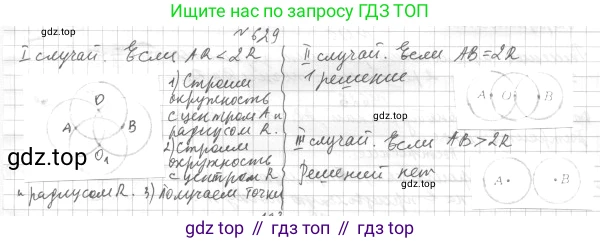 Ищите нас по запросу ГДЗ ТОП
№629
I случай. Если AB < 2R
1) Строим
окружность
с центром A и
радиусом R.
2) Строим
окружность
с центром
и радиусом R. 3) Получаем точки
O
A
B
O₁
gdz.top
II случай. Если AB = 2R
1 решение
A
O
B
III случай. Если AB > 2R
Решений нет
A
B
gdz.top
gdz.top
gdz.top // gdz.top // gdz.top